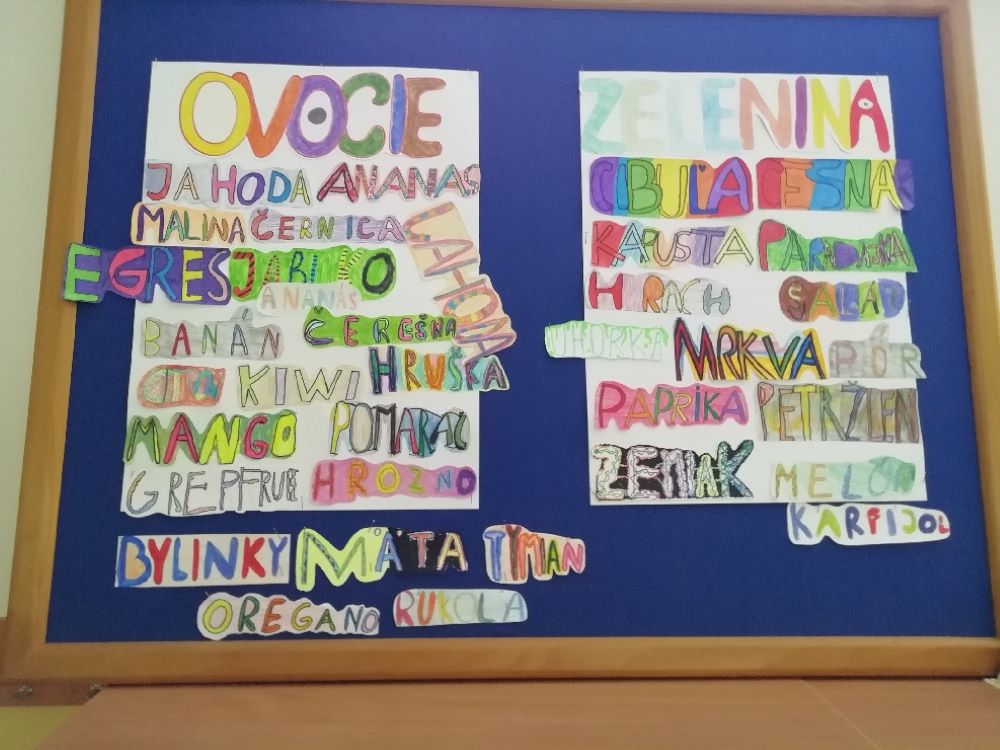 OVOCIE
JAHODA ANANAS
MALINA ČERNICA
JAHODA
EGREŠ JABLKO
ANANÁS
BANÁN ČEREŠŇA
KIWI HRUŠKA
MANGO POMARAČ
GREPFRUIT HROZNO
ZELENINA
CIBUĽA CESNAK
KAPUSTA PARADAJKA
HRACH ŠALÁT
UHORKA MRKVA PÓR
PAPRIKA PETRŽLEN
ZEMIAK MELÓN
KARFIJOL
BYLINKY MÄTA TYMIAN
OREGANO RUKOLA